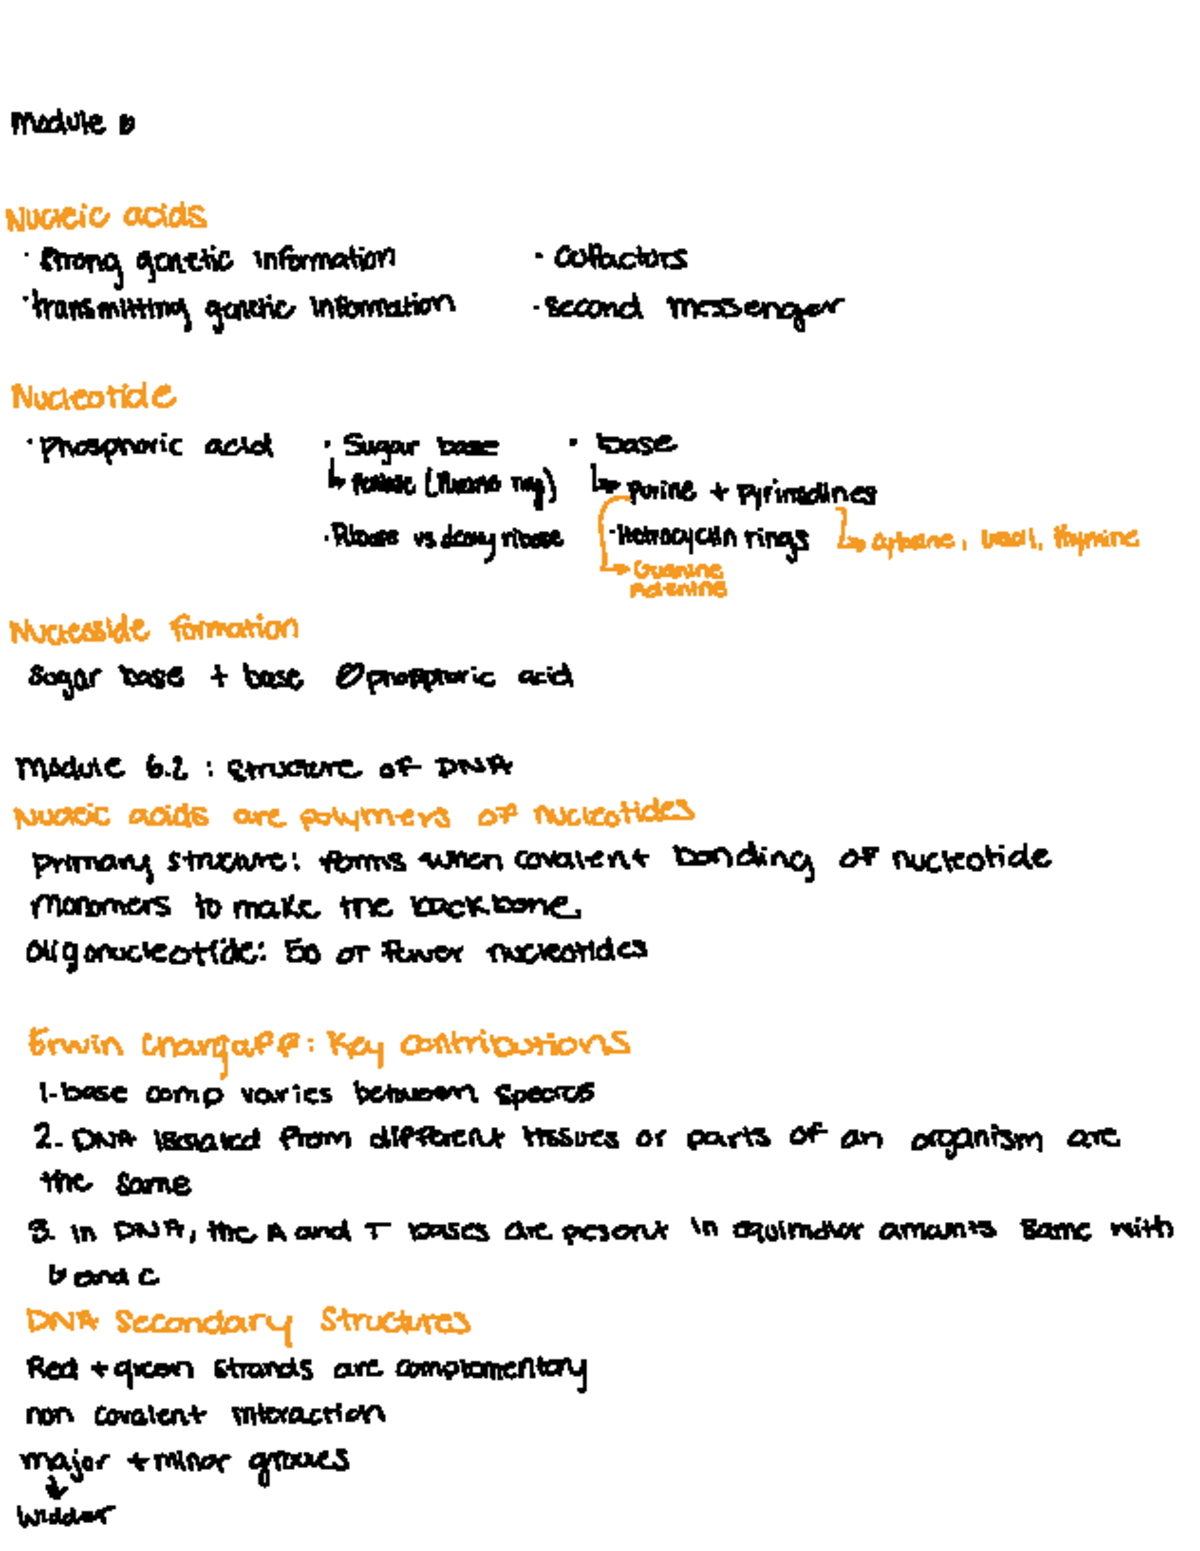 Module 6
Nucleic acids
· Strong genetic information
· Cofactors
· transmitting genetic information
· Second messenger
Nucleotide
· Phosphoric acid
· Sugar base
· base
↳ Pentose (Furano ring)
↳ purine + pyrimidines
· Ribose vs deoxy ribose
· Hetrocyclin rings
↳ cytosine, uracil, thymine
↳ Guanine
Adenine
Nucleoside formation
Sugar base + base Ø phosphoric acid
Module 6.2 : Structure of DNA
Nucleic acids are polymers of nucleotides
primary structure: forms when covalent bonding of nucleotide
monomers to make the backbone.
Oligonucleotide: 50 or fewer nucleotides
Erwin Chargaff: Key contributions
1. base comp varies between species
2. DNA isolated from different tissues or parts of an organism are
the same
3. in DNA, the A and T bases are present in equimolar amounts same with
G and C
DNA Secondary Structures
Red + green strands are complementary
non covalent interaction
major + minor grooves
↓
widder